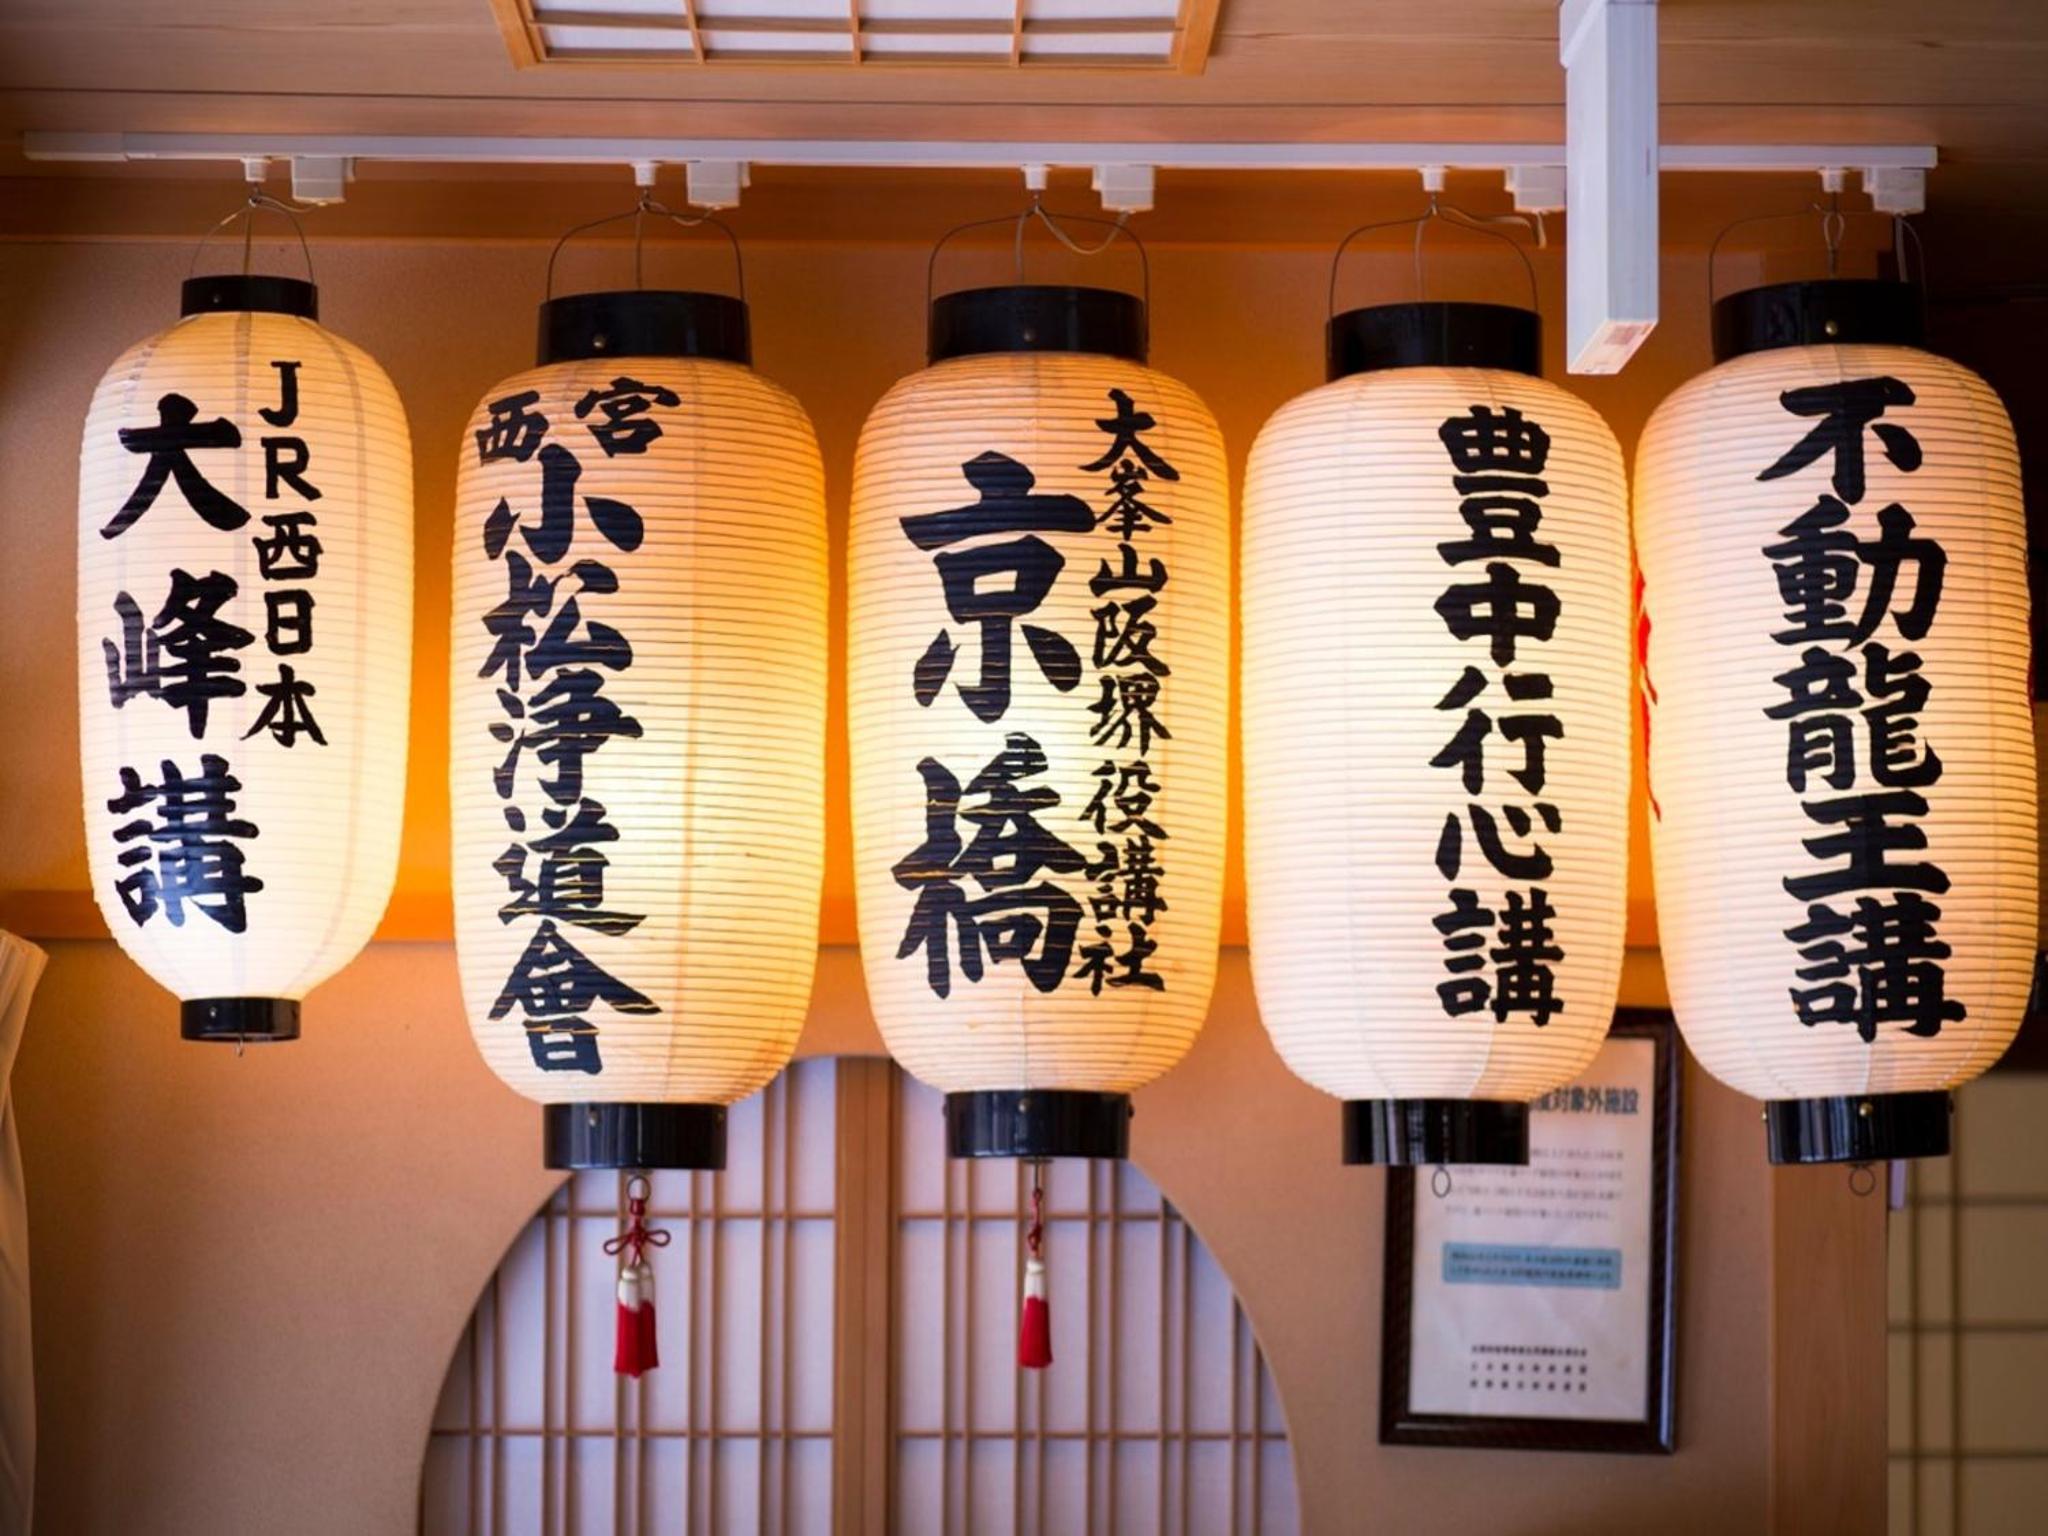 不動龍王講
豊中行心講
大峯山阪堺役講社
京橋
西宮
小松浄道會
JR西日本
大峰講
対象外施設